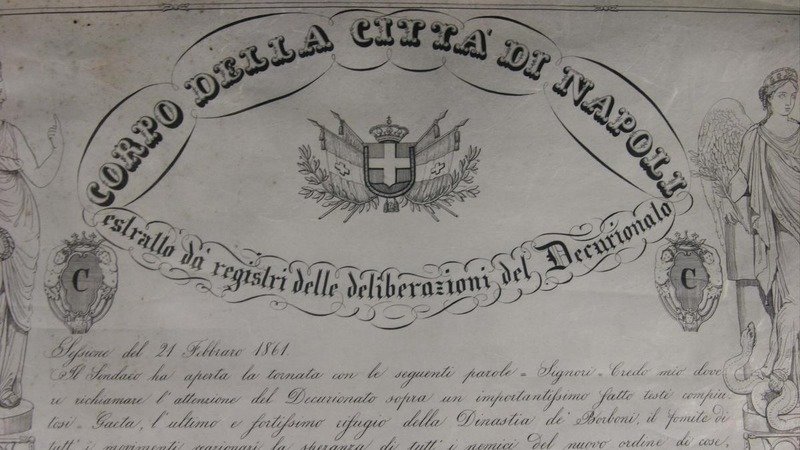 CORPO DELLA CITTÀ DI NAPOLI
estratto da' registri delle deliberazioni del Decurionato
C
C
Sessione del 21 Febbraro 1861.
Il Sindaco ha aperta la tornata con le seguenti parole = Signori = Credo mio dove
re richiamare l'attenzione del Decurionato sopra un importantissimo fatto testè compiu-
tosi = Gaeta, l'ultimo e fortissimo rifugio della Dinastia de' Borboni, il fomite di
tutt' i movimenti reazionari la speranza di tutt' i nemici del nuovo ordine di cose,